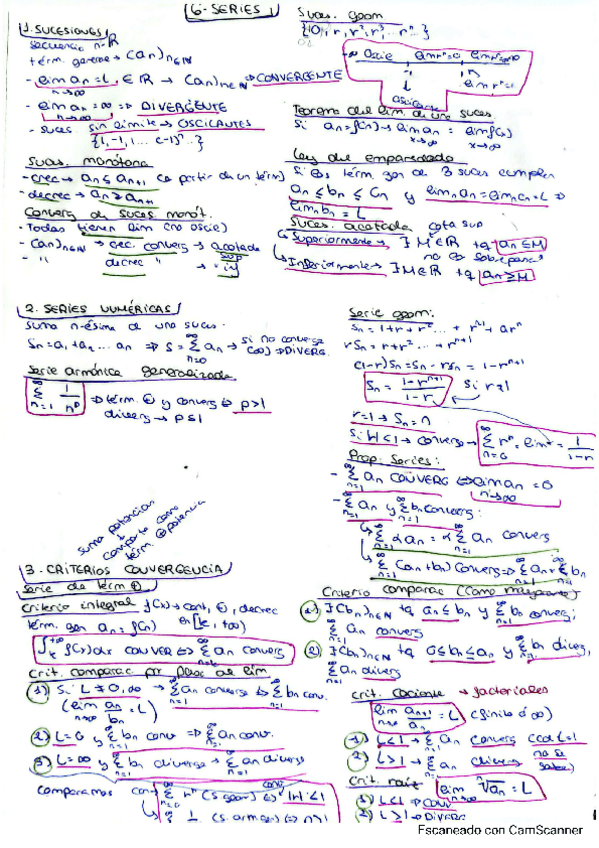 6. SERIES
1. SUCESIONES
secuencia nº R
térm. general → (an)n∈N
- lim an = L, ∈ R → (an)n∈N ⇒ CONVERGENTE
n→∞
- lim an = ∞ ⇒ DIVERGENTE
n→∞
- suces. sin límite → OSCILANTES
{1, -1, 1 ... (-1)^n ..}
Suces. monótona
- crec → an ≤ an+1 (a partir de un térm)
- decrec → an ≥ an+1
Converg de suces. monót.
- Todas tienen lim (no oscil)
- (an)n∈N → crec. converg → acotada sup
- " decrec " → " inf
Suces. geom
Oscila
lim r^n = 0
lim r^n = 1
oscilante
Teorema del lim de una suces
Si an = f(n) → lim an = lim f(x)
n→∞ x→∞
Ley del emparedado
Si los térm. gen de 3 suces cumplen
an ≤ bn ≤ cn y lim an = lim cn = L ⇒
lim bn = L
Suces. acotada
cota sup
Superiormente → ∃ M ∈ R tq an ≤ M
Inferiormente → ∃ M ∈ R tq an ≥ M
2. SERIES NUMÉRICAS
suma n-ésima de una suces.
Sn = a1 + a2 ... an ⇒ S = ∑ an → si no converge
n=0 (∞) ⇒ DIVERG.
Serie armónica generalizada
∞ ∑ n=1 1/n^p ⇒ térm. ⊕ y converg ⇔ p>1
diverg → p≤1
Serie geom:
Sn = 1+r+r² ... + r^n-1 + ar^n
rSn = r+r² ... + r^n+1
(1-r)Sn = Sn - rSn = 1-r^n+1
Sn = 1+r^n+1 / 1-r si r≠1
r=1 → Sn = n
Si |r| <1 → converge → ∑ r^n = lim = 1/1-r
Prop. Series:
- ∑ an CONVERG ⇔ lim an = 0
- ∑ an y ∑ bn converg:
∑ αan = α ∑ an converg
∑ (an+bn) Converg ⇒ ∑ an + ∑ bn
suma potencias
comparte como
térm. ⊕ potencia
3. CRITERIOS CONVERGENCIA
serie de térm ⊕
Criterio integral f(x) → cont, ⊕, decrec
térm. gen an = f(n) en [k, +∞)
∫ f(x)dx CONVER ⇔ ∑ an converg
Crit. comparac por paso al lim
1) Si L ≠ 0, ∞ → ∑ an converge ⇔ ∑ bn conv.
(lim an/bn = L)
2) L=0 y ∑ bn conv ⇒ ∑ an conv.
3) L=∞ y ∑ bn diverge → ∑ an diverg
comparamos con ∑ r^n (s. geom) ⇔ |r| <1
∑ 1/ (s. armon) ⇔ p>1
Criterio comparac
1) ∃(bn)n∈N tq an ≤ bn y ∑ bn converg,
∑ an converg
2) ∃(bn)n∈N tq 0 ≤ bn ≤ an y ∑ bn diverg,
∑ an diverg
crit. cociente → factoriales
lim an+1/an = L (finito ó ∞)
1) L<1 → ∑ an converg con L=1
2) L>1 → ∑ an diverg no se sabe)
Crit. raíz lim ⁿ√an = L
1) L<1 ⇒ CONV
2) L>1 → DIVERG
Escaneado con CamScanner